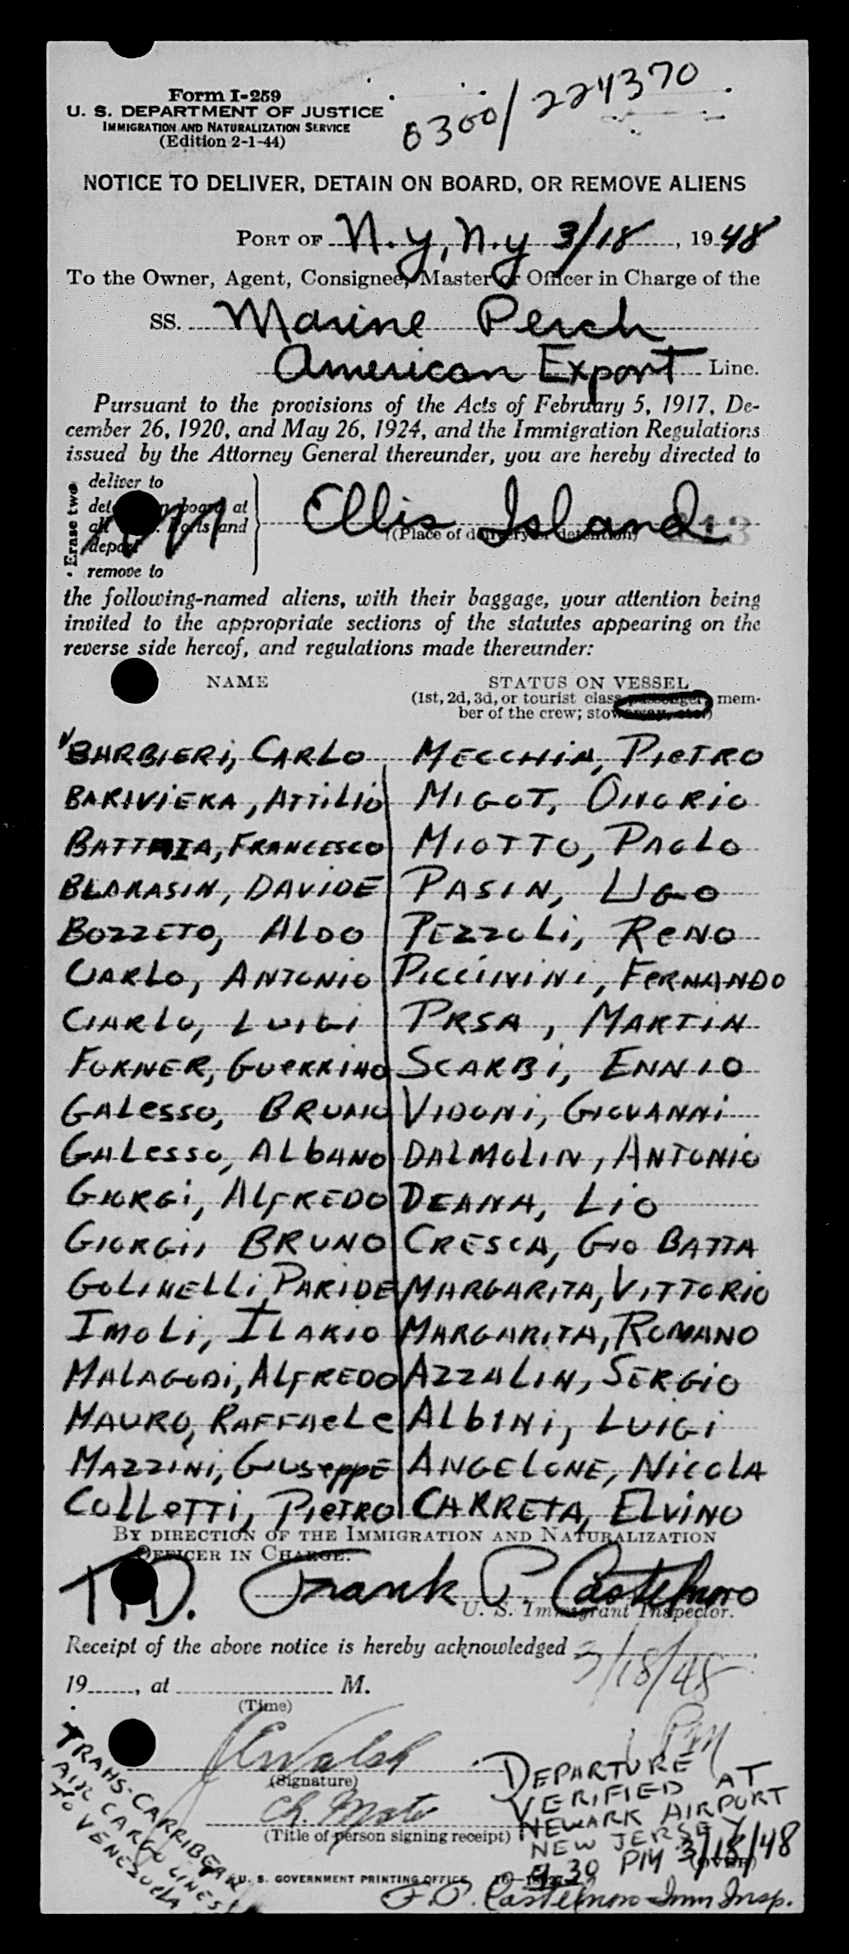 Form I-259
U. S. DEPARTMENT OF JUSTICE
IMMIGRATION AND NATURALIZATION SERVICE
(Edition 2-1-44)
0300/224370
NOTICE TO DELIVER, DETAIN ON BOARD, OR REMOVE ALIENS
PORT OF N.y, n.y 3/18, 1948
To the Owner, Agent, Consignee, Master or Officer in Charge of the
SS. Marine Perch
American Export Line.
Pursuant to the provisions of the Acts of February 5, 1917, De-
cember 26, 1920, and May 26, 1924, and the Immigration Regulations
issued by the Attorney General thereunder, you are hereby directed to
Erase two
deliver to
board at
Ports and
deport
remove to
Ellis Island
(Place of delivery or detention)
the following-named aliens, with their baggage, your attention being
invited to the appropriate sections of the statutes appearing on the
reverse side hereof, and regulations made thereunder:
NAME STATUS ON VESSEL
(1st, 2d, 3d, or tourist class passenger; mem-
ber of the crew; stowaway, etc.)
BARBIERI, CARLO MECCHIA, PIETRO
BARIVIERA, ATTILIO MIGOT, ONORIO
BATTAIA, FRANCESCO MIOTTO, PAOLO
BLARASIN, DAVIDE PASIN, UGO
BOZZETO, ALDO PEZZOLI, RENO
CIARLO, ANTONIO PICCININI, FERNANDO
CIARLO, LUIGI PRSA, MARTIN
FORNER, GUERRINO SCARBI, ENNIO
GALESSO, BRUNO VIDONI, GIOVANNI
GALESSO, ALBANO DALMOLIN, ANTONIO
GIORGI, ALFREDO DEANA, LIO
GIORGI, BRUNO CRESCA, GIO BATTA
GOLINELLI, PARIDE MARGARITA, VITTORIO
IMOLI, ILARIO MARGARITA, ROMANO
MALAGODI, ALFREDO AZZALIN, SERGIO
MAURO, RAFFAELE ALBINI, LUIGI
MAZZINI, GIUSEPPE ANGELONE, NICOLA
COLLETTI, PIETRO CARRETA, ELVINO
BY DIRECTION OF THE IMMIGRATION AND NATURALIZATION
OFFICER IN CHARGE.
Frank P. Castelnovo
U. S. Immigrant Inspector.
Receipt of the above notice is hereby acknowledged 3/18/48
19 , at M.
(Time)
1 PM
J Walsh
(Signature)
Ch. Mate
(Title of person signing receipt)
TRANS-CARRIBEAN
AIR CARGO LINES
TO VENEZUELA
DEPARTURE
VERIFIED AT
NEWARK AIRPORT
NEW JERSEY
9.30 PM 3/18/48
U. S. GOVERNMENT PRINTING OFFICE
F. P. Castelnovo - Imm Insp.